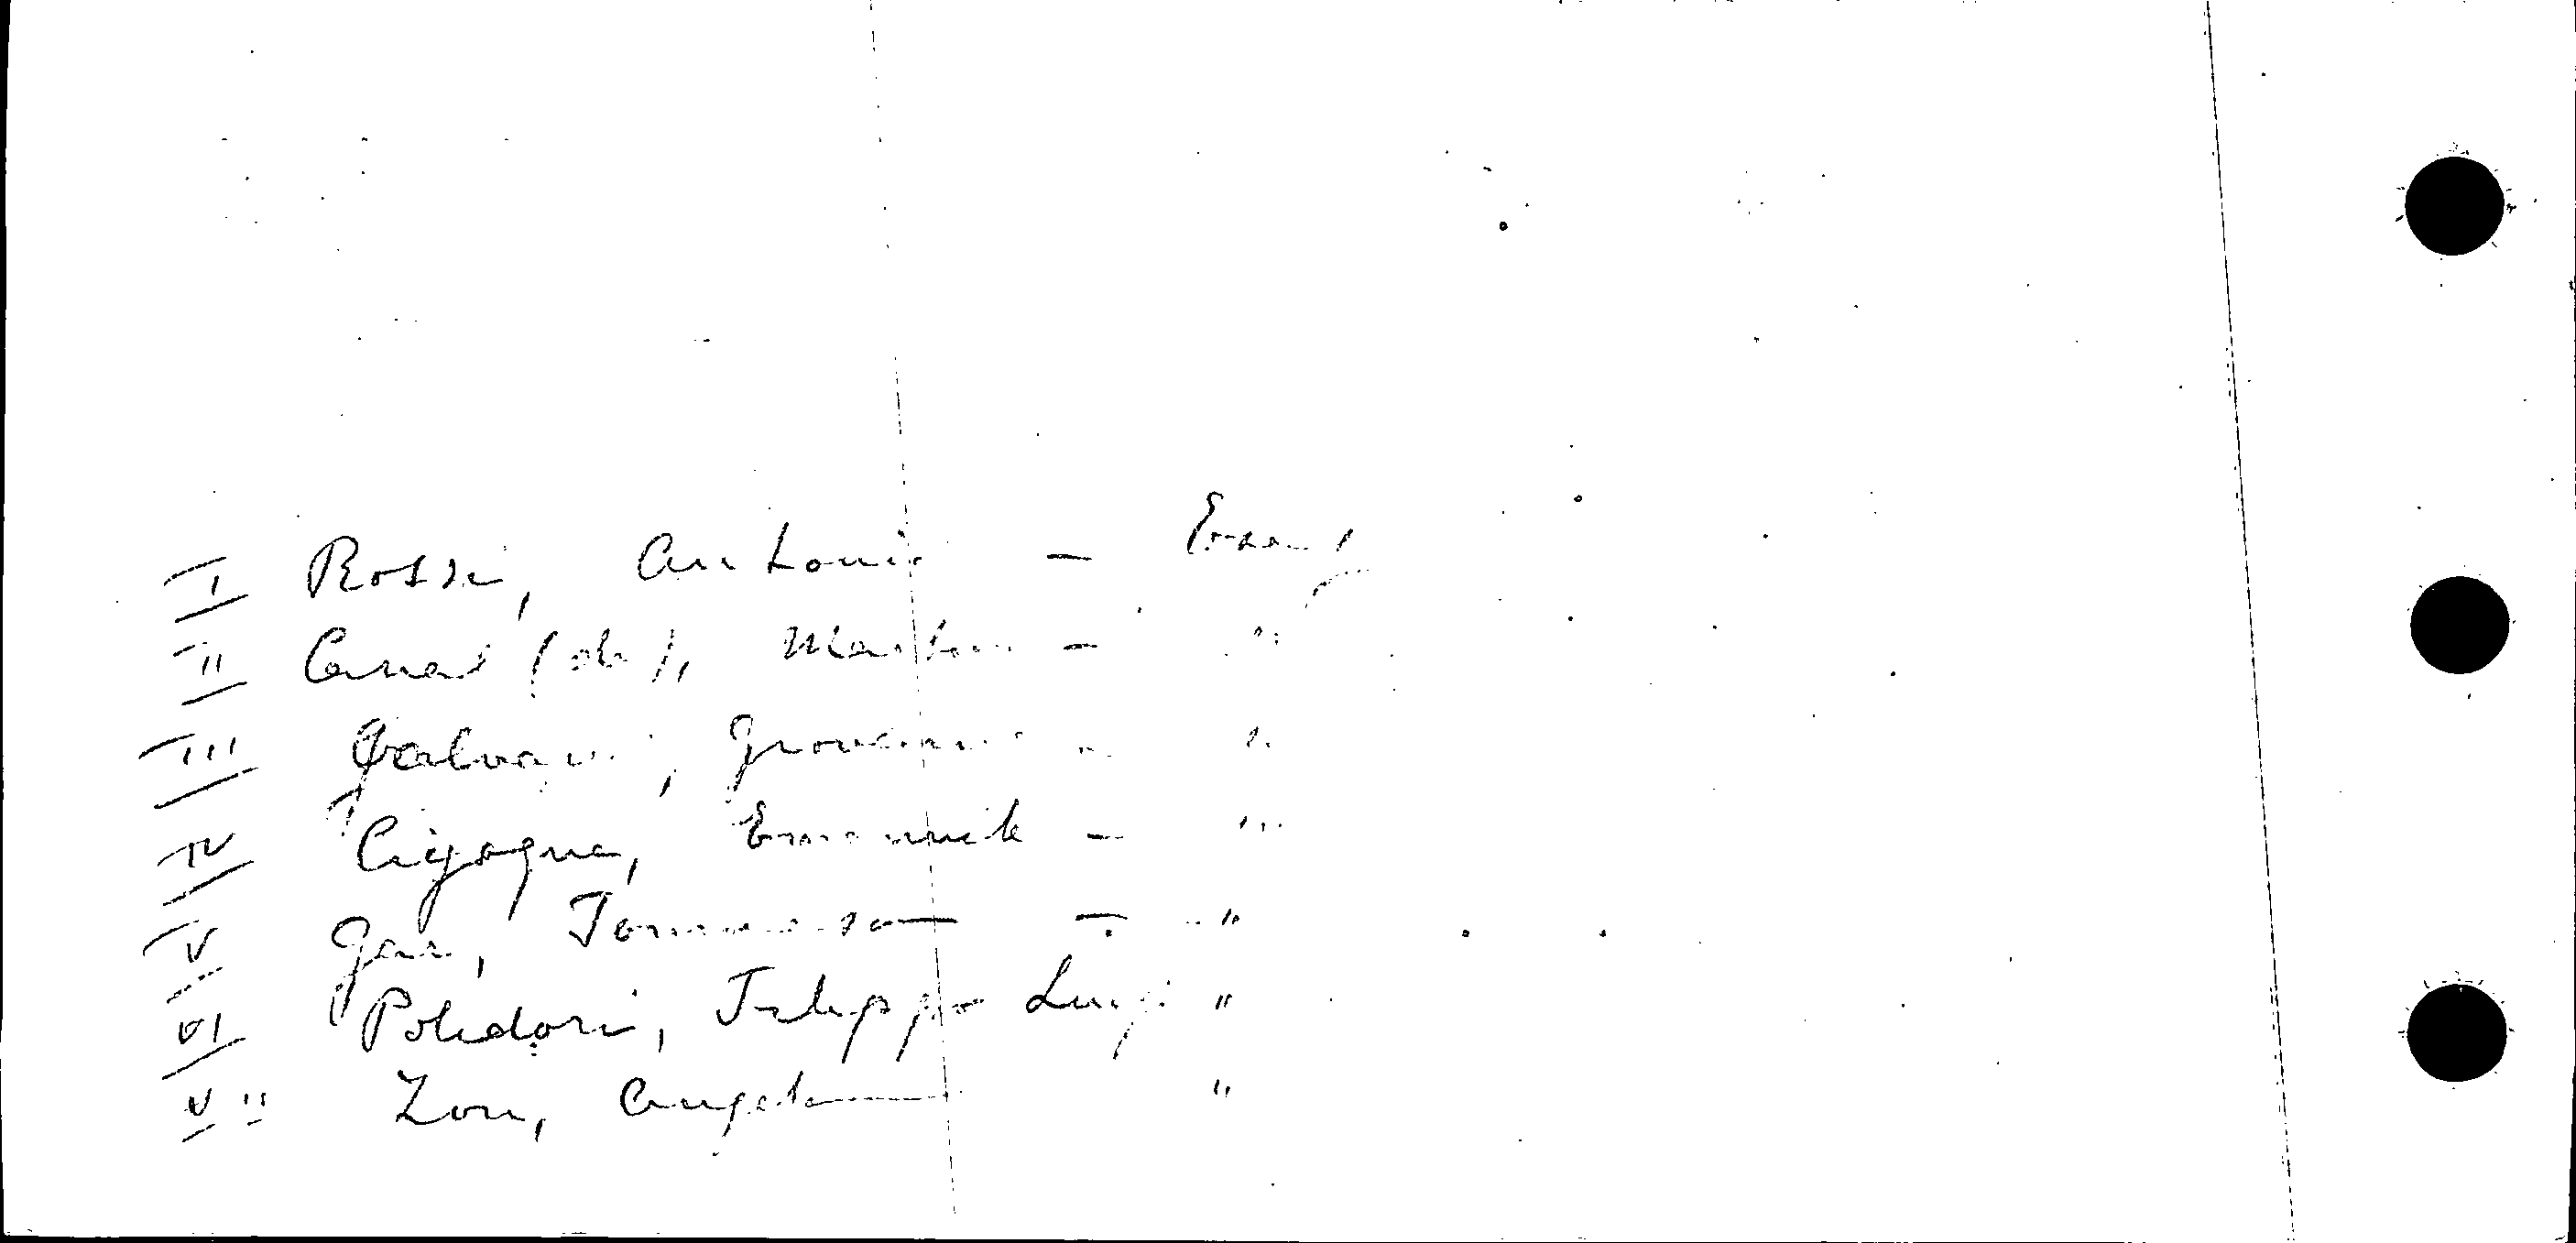 I Rossi, Antonio - Essay
II Canal (da), Martin - "
III Galvani, Giovanni - "
IV Cigogna, Emanuele - "
V Gar, Tommaso - "
VI Polidori, Filippo Luigi "
VII Zon, Angelo "